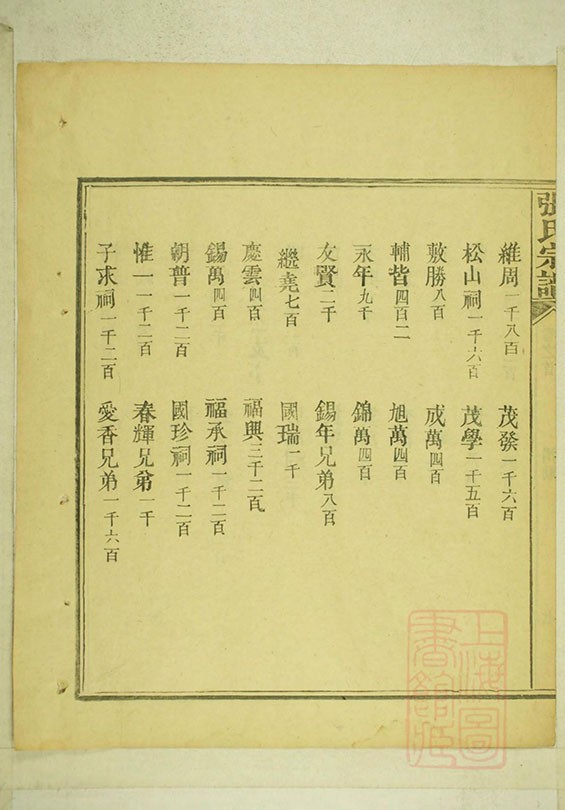 張氏宗譜
維周一千八百 茂發一千六百
松山祠一千六百 茂學一千五百
敷勝八百 成萬四百
輔皆四百二 旭萬四百
永年九千 錦萬四百
友賢二千 錫年兄弟八百
繼堯七百 國瑞一千
慶雲四百 福興三千二百
錫萬四百 福承祠一千二百
朝普一千二百 國珍祠一千二百
惟一一千二百 春輝兄弟一千
子求祠一千二百 愛香兄弟一千六百
上海圖
書館藏